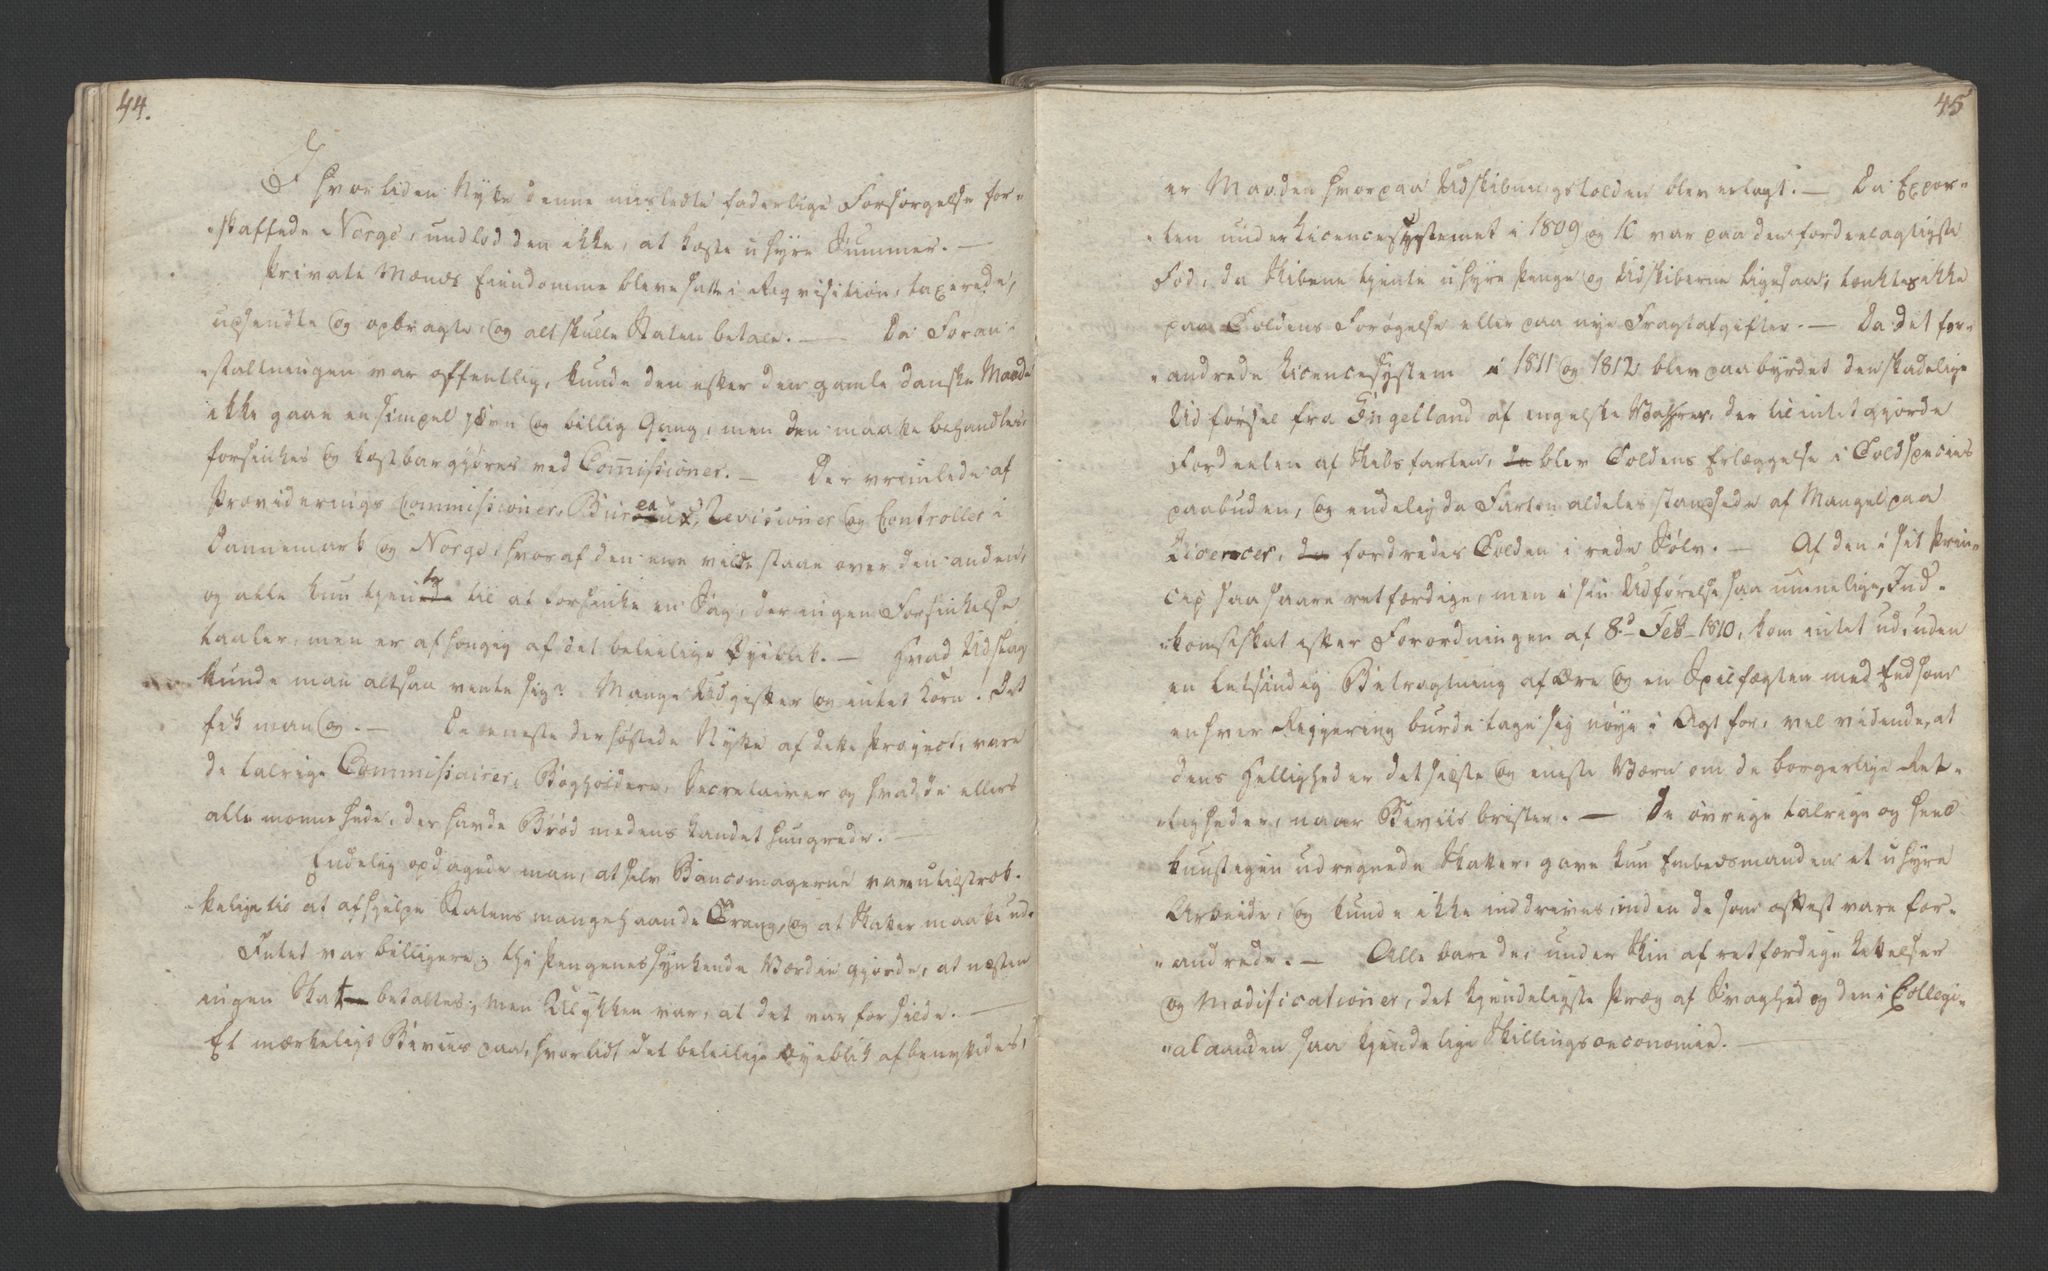 44.
I hvor liden Nytte denne misledte faderlige Forsørgelse for-
skaffede Norge, undlod den ikke, at koste uhyre Summer. —
Private Mænds Eiendomme bleve satte i Reqvisition, taxerede,
udsendte og opbragte, og alt skulle Staten betale. — Da Foran-
staltningen var offentlig, kunde den efter den gamle danske Maade
ikke gaae en simpel jævn og billig Gang, men den maatte behandles,
forsinkes og kostbargjøres ved Commissioner. — Der vrimlede af
Provideringscommissioner, Bureaux, Revisioner og Controller i
Dannemark og Norge, hvoraf den ene vilde staae over den anden,
og alle kun tjente til at forsinke en Sag, der ingen Forsinkelse
taaler, men er afhængig af det beleilige Øieblik. — Hvad Udslag
kunde man altsaa vente sig? Mange Udgifter og intet Korn! Det
fik man og. — De eneste der høstede Nytte af dette Project, vare
de talrige Commissairer, Bogholdere, Secretairer og hvad de ellers
alle monne hede, der havde Brød medens Landet hungrede. —
Endelig opdagede man, at selv Bancomagerne vare utilstræk-
kelige til at afhjelpe Statens mangehaande Trang, og at Skatter maatte ud.
Intet var billigere; thi Pengenes synkende Værdie gjorde, at næsten
ingen Skat betaltes; men Ulykken var, at det var for silde. —
Et mærkeligt Beviis paa, hvor lidt det beleilige Øyeblik afbenyttedes,
45
er Maaden hvorpaa Udskibningstolden blev erlagt. — Da Expor-
ten under Licencesystemet i 1809 og 10 var paa den fordeelagtigste
Fod, da Skibene tjente uhyre Penge og Udskiberne ligesaa; tænktes ikke
paa Toldens Forøgelse eller paa nye Fragtafgifter. — Da det for-
andrede Licencesystem i 1811 og 1812 blev paabyrdet den skadelige
Udførsel fra Engelland af engelske Vahrer, der tilintetgjorde
Fordeelen af Skibsfarten, blev Toldens Erlæggelse i Toldspecies
paabuden, og endelig da Farten aldeles standsede af Mangel paa
Licencer, fordredes Tolden i rede Sølv. — Af den i sit Prin-
cip saa saare retfærdige, men i sin Udførelse saa umuelige, Ind-
komstskat efter Forordningen af 8de Feb 1810, kom intet ud, uden
en letsindig Betragtning af Ære og en Spilfægten med Eed som
enhver Regjering burde tage sig nøye i Agt for, vel vidende, at
dens Hellighed er det sidste og eneste Værn om de borgerlige Ret-
tigheder, naar Beviis brister. — De øvrige talrige og heel
kunstigen udregnede Skatter, gave kun Embedsmanden et uhyre
Arbeide, og kunde ikke inddrives, inden de som oftest vare for-
andrede. — Alle bare de, under Skin af retfærdige Lettelser
og Modificationer, det kjendeligste Præg af Svaghed og den i Collegi-
alaanden saa kjendelige Skillingsoeconomie. —